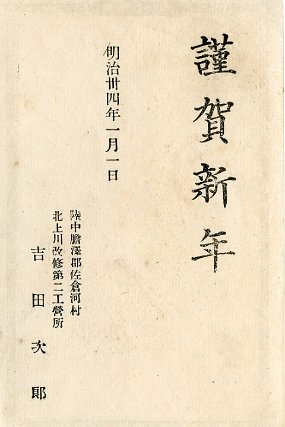 謹賀新年
明治卅四年一月一日
陸中膽澤郡佐倉河村
北上川改修第二工營所
吉田次郎